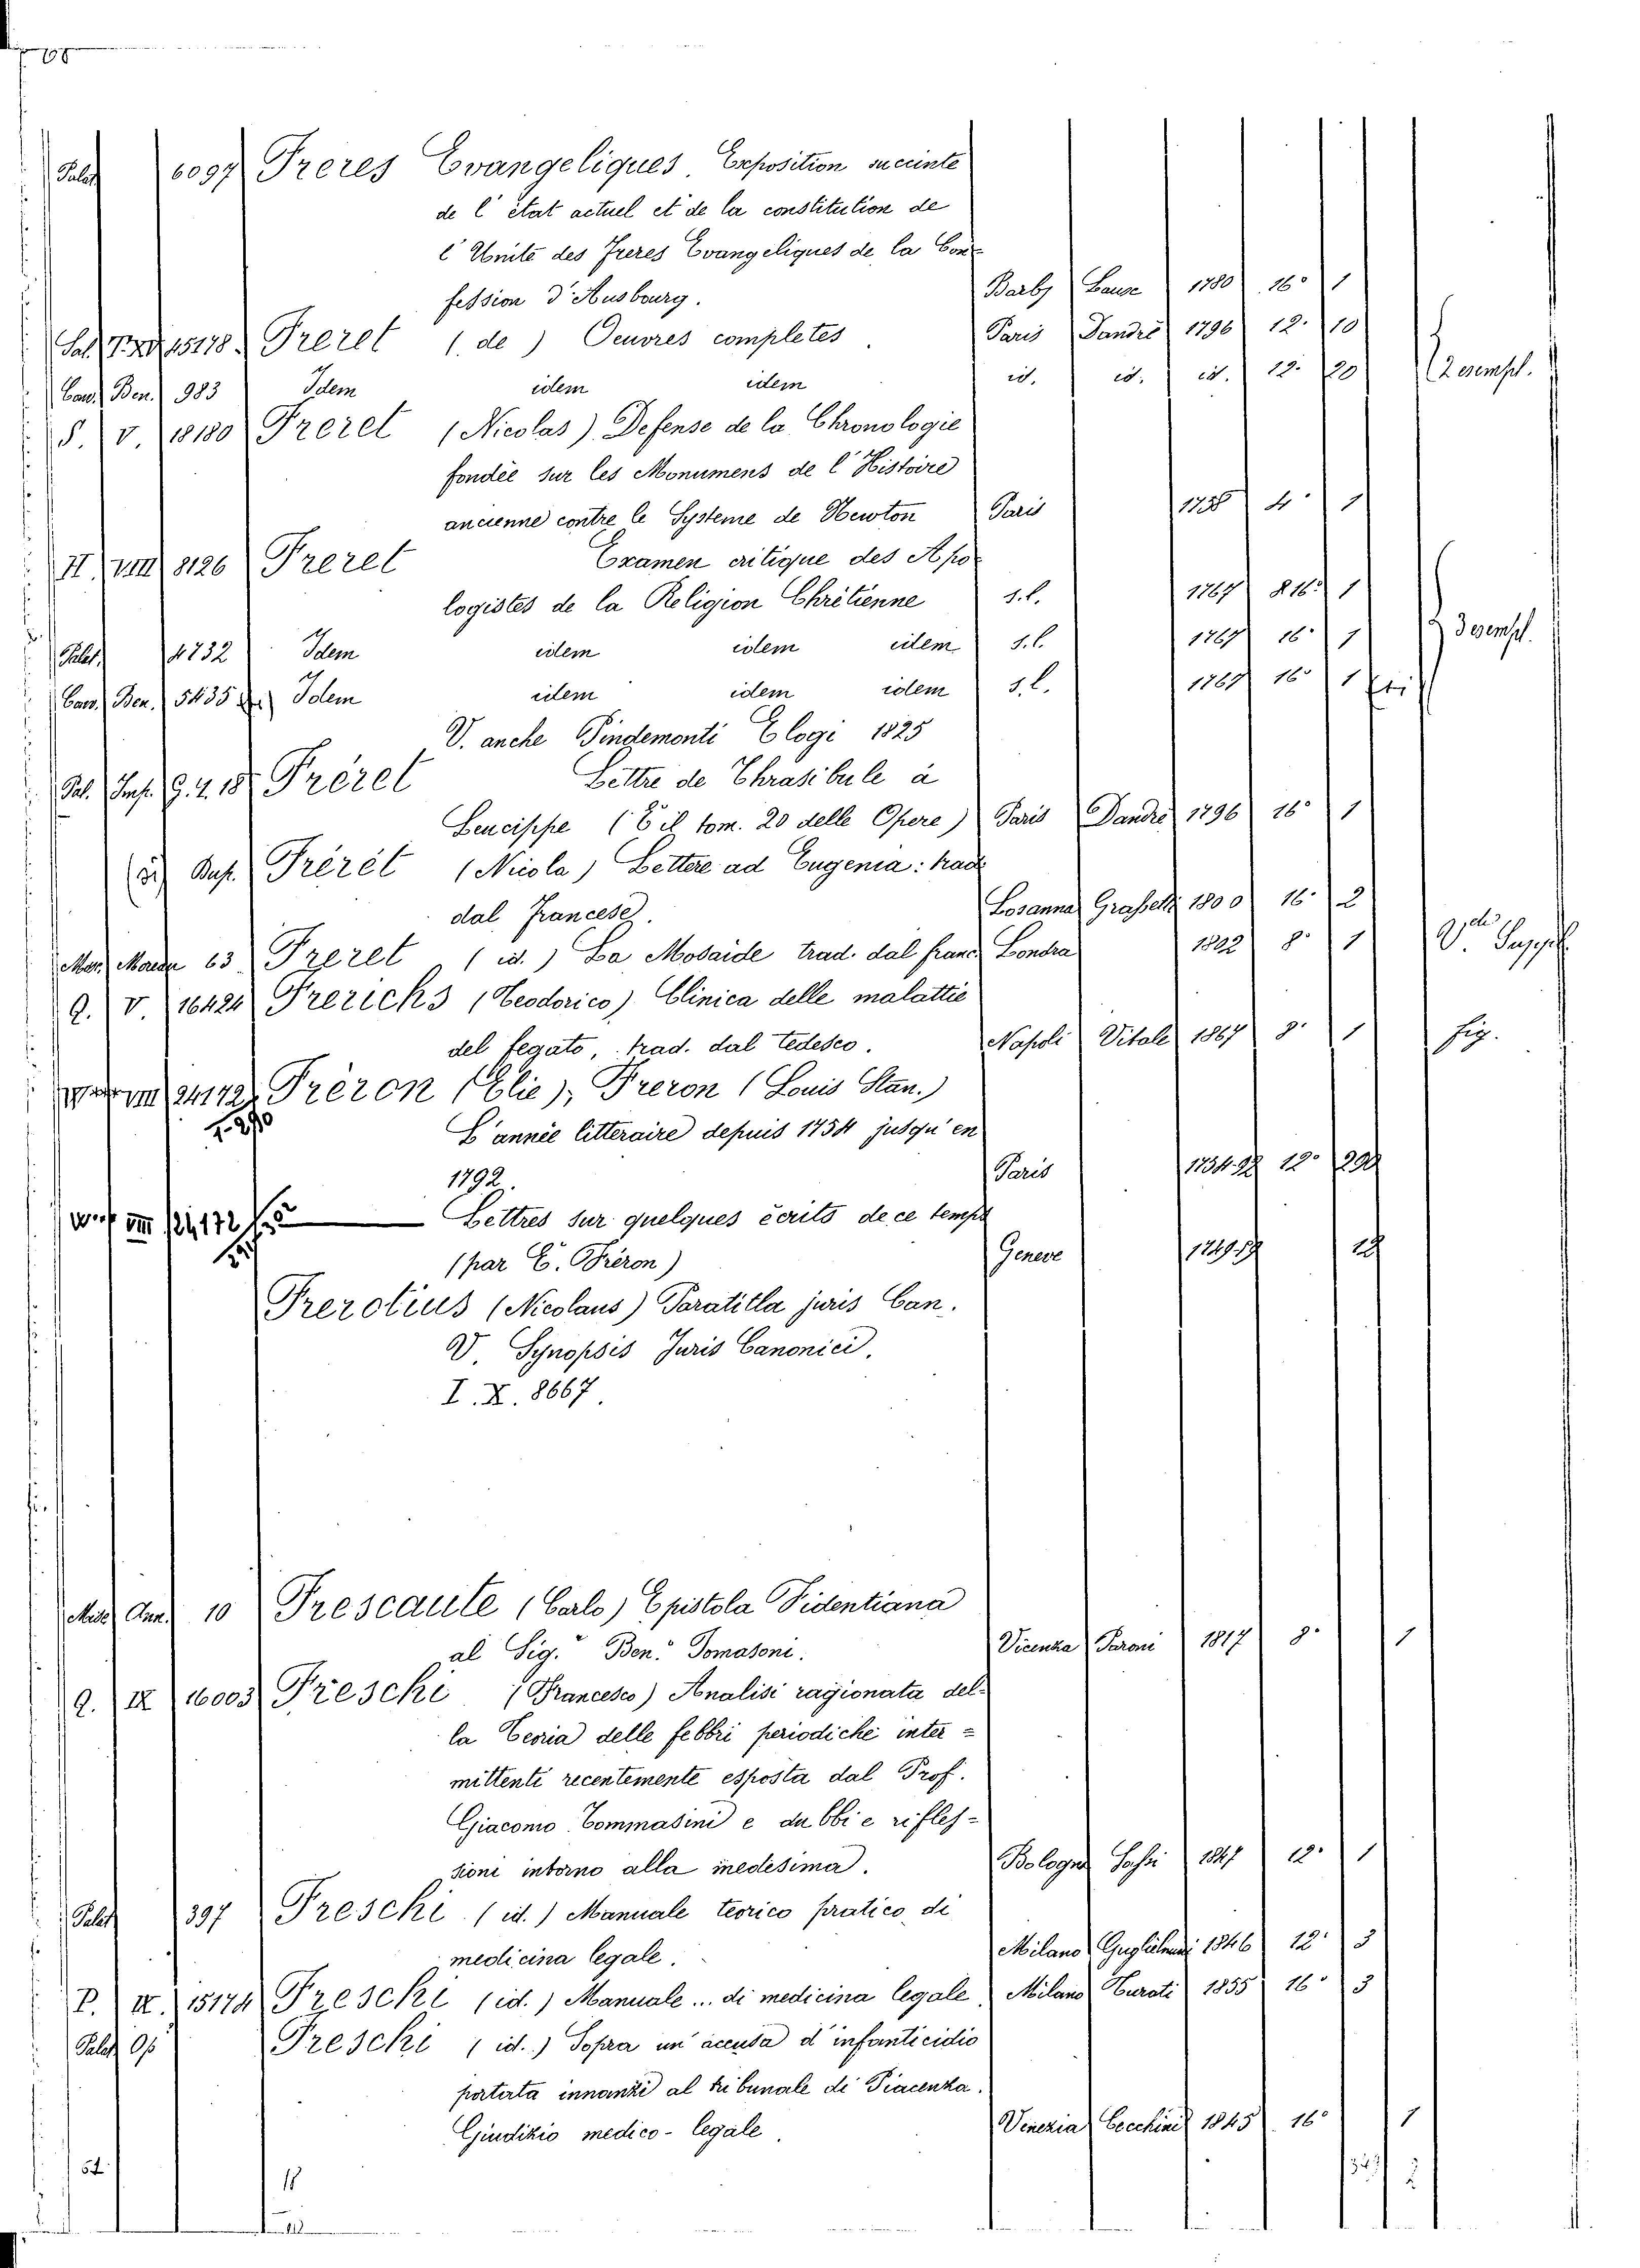 6097 Freres Evangeliques. Exposition succinte
de l'état actuel et de la constitution de
l'Unité des Freres Evangeliques de la Con-
fession d'Ausbourg. Barby Lause 1780 16° 1
15178 Freret (de) Oeuvres completes. Paris Dandré 1796 12. 10
Can. Ben. 983 Idem idem idem id. id. id. 12. 20 2 esempl.
S. V. 18180 Freret (Nicolas) Defense de la Chronologie
fondée sur les Monumens de l'Histoire
ancienne contre le Systeme de Newton Paris 1758 4° 1
II VIII 8126 Freret Examen critique des Apo-
logistes de la Religion Chrétienne s.l. 1767 16. 1
Palat. 4732 Idem idem idem idem s.l. 1767 16. 1 3 esempl.
Can. Ben. 5435 Idem idem idem idem s.l. 1767 16° 1
V. anche Pindemonti Elogi 1825
Pal. Imp. G. 4. 18 Fréret Lettre de Thrasibule à
Leucippe (È il tom. 20 delle Opere) Paris Dandré 1796 16° 1
Fréret (Nicola) Lettere ad Eugenia: trad.
dal Francese. Losanna Grasset 1800 16. 2
63 Freret (id.) La Mosaide trad. dal franc. Londra 1822 8. 1 V. Suppl.
Q. V. 16424 Frerichs (Teodorico) Clinica delle malattie
del fegato, trad. dal tedesco. Napoli Vitale 1867 8. 1 fig.
VIII 24172 Fréron (Elie), Freron (Louis Stan.)
1-290 L'année litteraire depuis 1754 jusqu'en
1792. Paris 12°
VIII 24172 Lettres sur quelques écrits de ce temps
(par E. Fréron) Geneve
Frerotius (Nicolaus) Paratitla juris Can.
V. Synopsis Juris Canonici.
I. X. 8667.
10 Frescaute (Carlo) Epistola Fidentiana
al Sig. Ben. Tomasoni. Vicenza Paroni 1817 8. 1
Q. IX 16003 Freschi (Francesco) Analisi ragionata del-
la Teoria delle febbri periodiche inter=
mittenti recentemente esposta dal Prof.
Giacomo Tommasini e dubbi e rifles-
sioni intorno alla medesima. Bologna Sassi 1847 12. 1
Palat. 397 Freschi (id.) Manuale teorico pratico di
medicina legale. Milano Guglielmini 1846 12. 3
P. IX. 15174 Freschi (id.) Manuale... di medicina legale Milano Turati 1855 16. 3
Palat. Op. Freschi (id.) Sopra un'accusa d'infanticidio
portata innanzi al tribunale di Piacenza.
Giudizio medico-legale. Venezia Cecchini 1845 16° 1
18